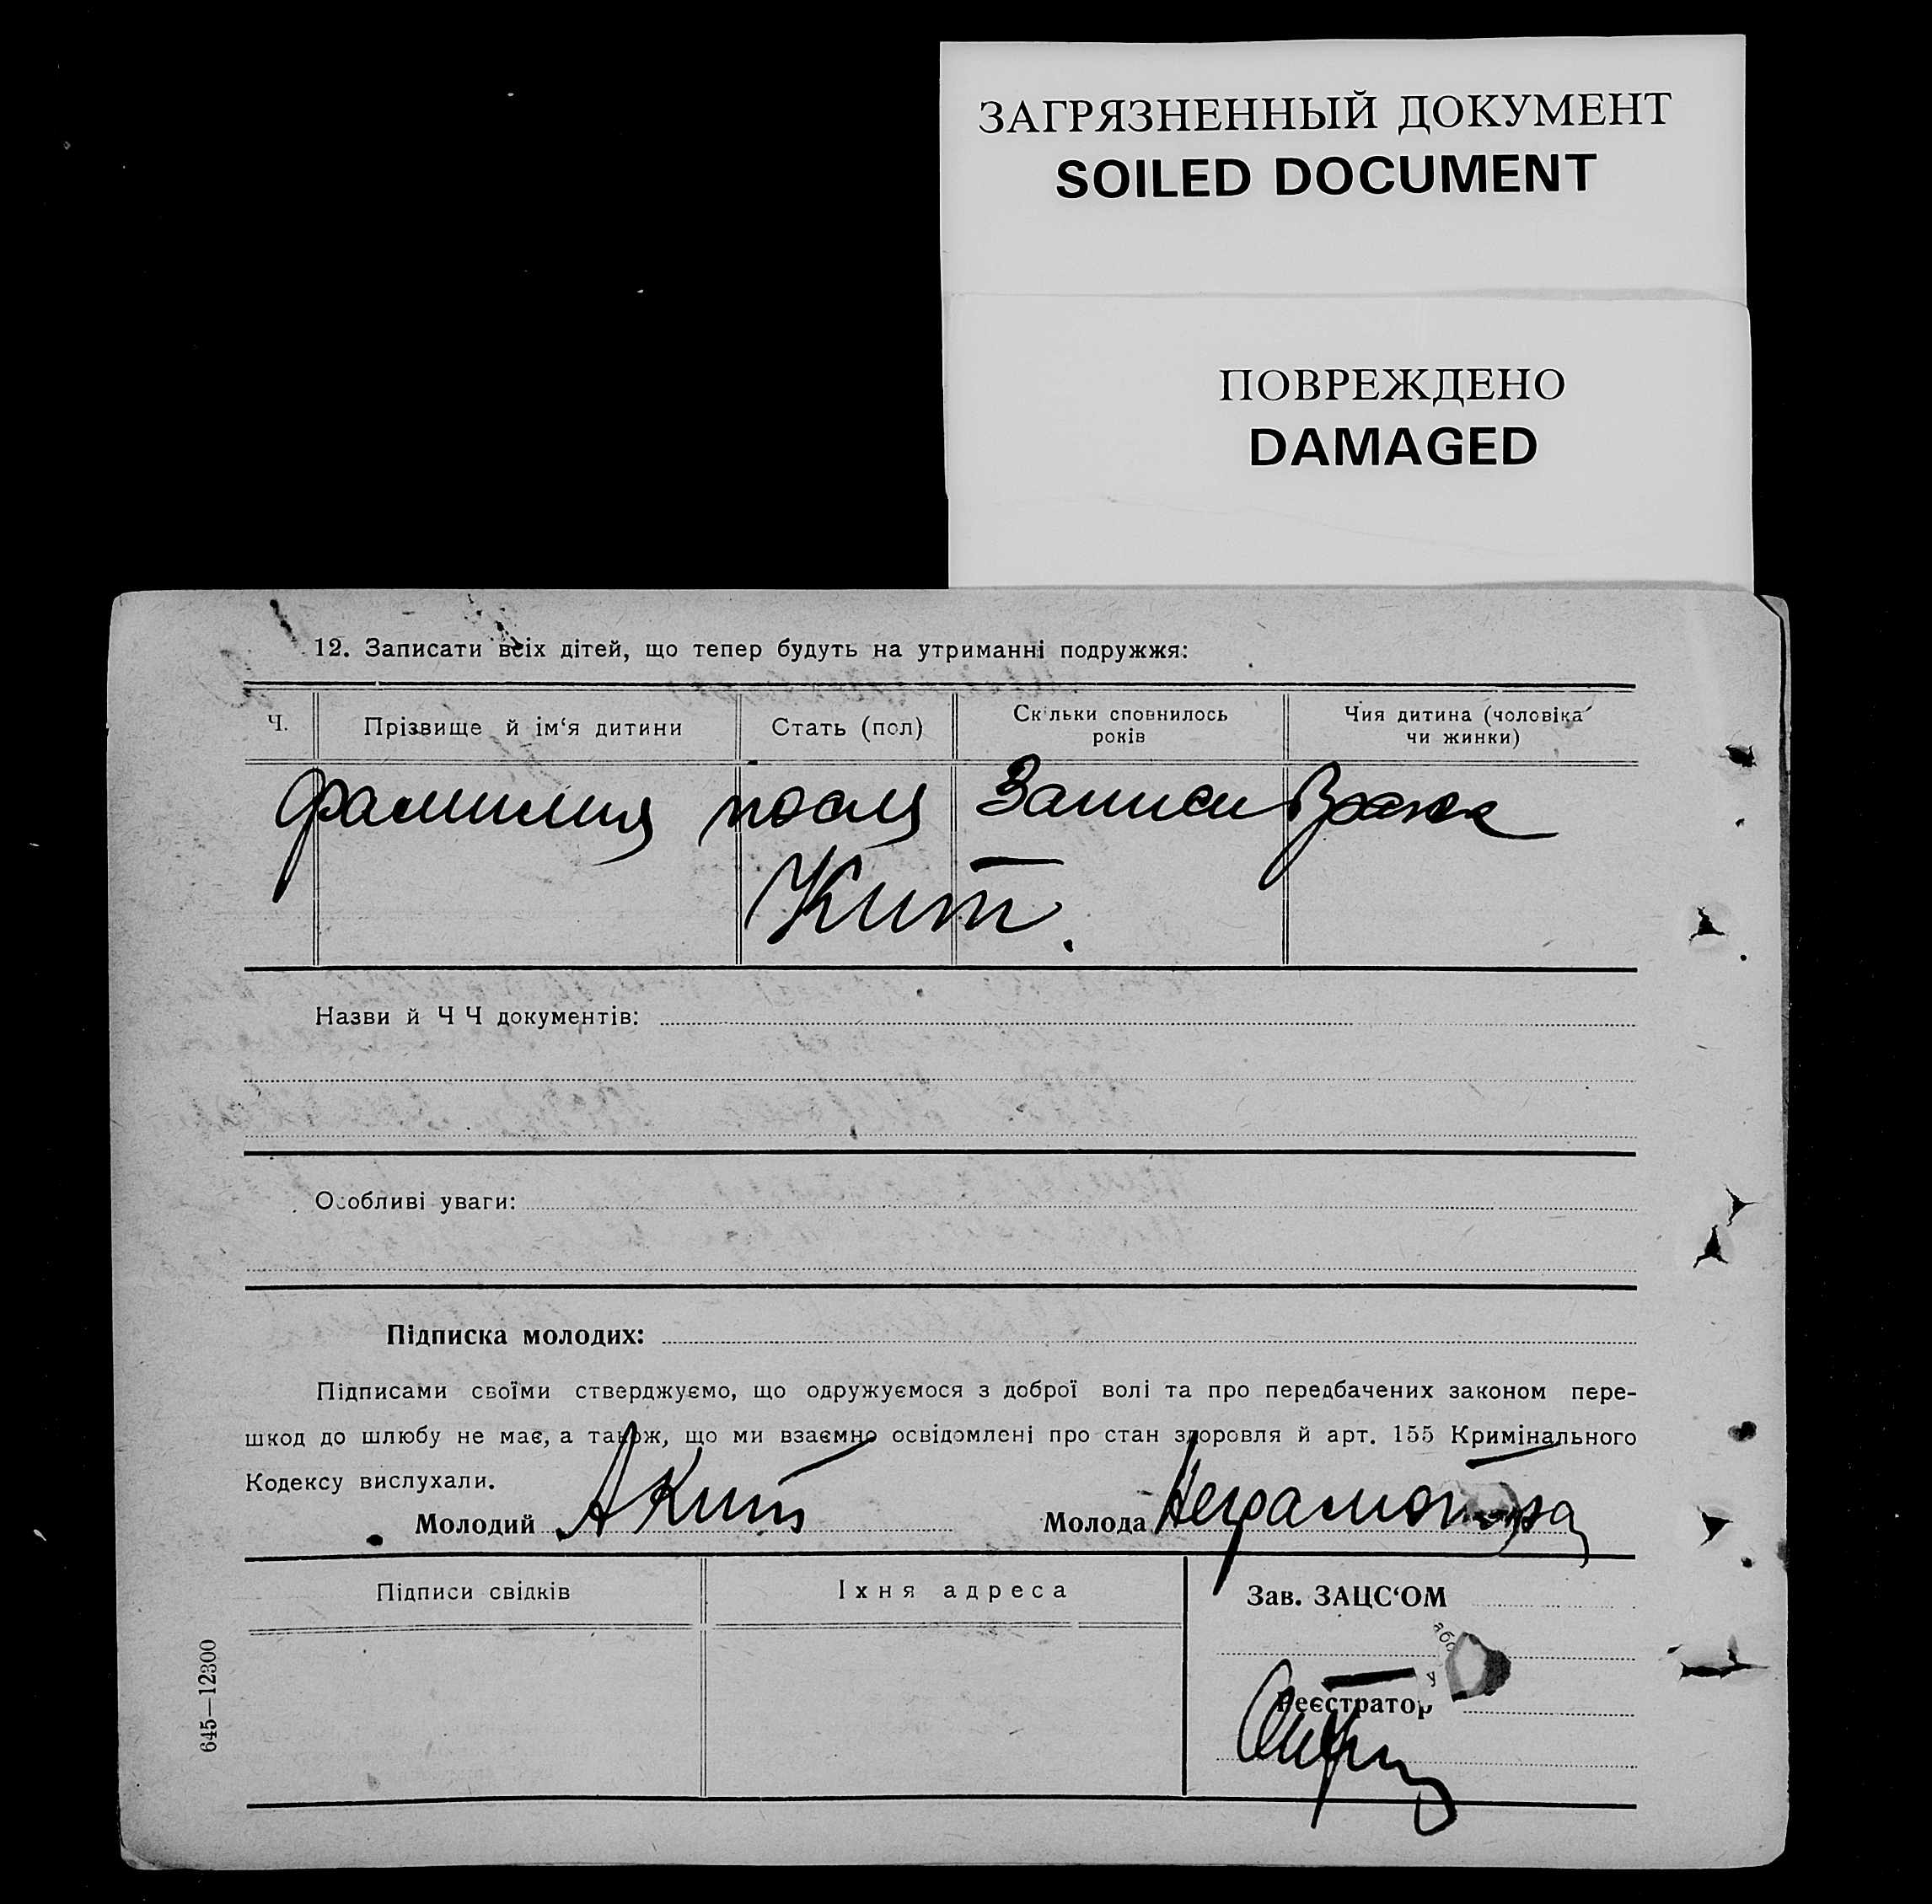 ЗАГРЯЗНЕННЫЙ ДОКУМЕНТ
SOILED DOCUMENT
ПОВРЕЖДЕНО
DAMAGED
12. Записати всіх дітей, що тепер будуть на утриманні подружжя:
Ч.
Прізвище й ім‘я дитини
Стать (пол)
Скільки сповнилось
років
Чия дитина (чоловіка
чи жинки)
фамилия после записи брака
Кит.
Назви й Ч Ч документів:
Особливі уваги:
Підписка молодих:
Підписами своїми стверджуємо, що одружуємося з доброї волі та про передбачених законом пере-
шкод до шлюбу не має, а також, що ми взаємно освідомлені про стан здоровля й арт. 155 Кримінального
Кодексу вислухали.
Молодий А Кит Молода Неграмотная
Підписи свідків
Іхня адреса
Зав. ЗАЦС‘ОМ
або
у
Реєстратор
645—12300